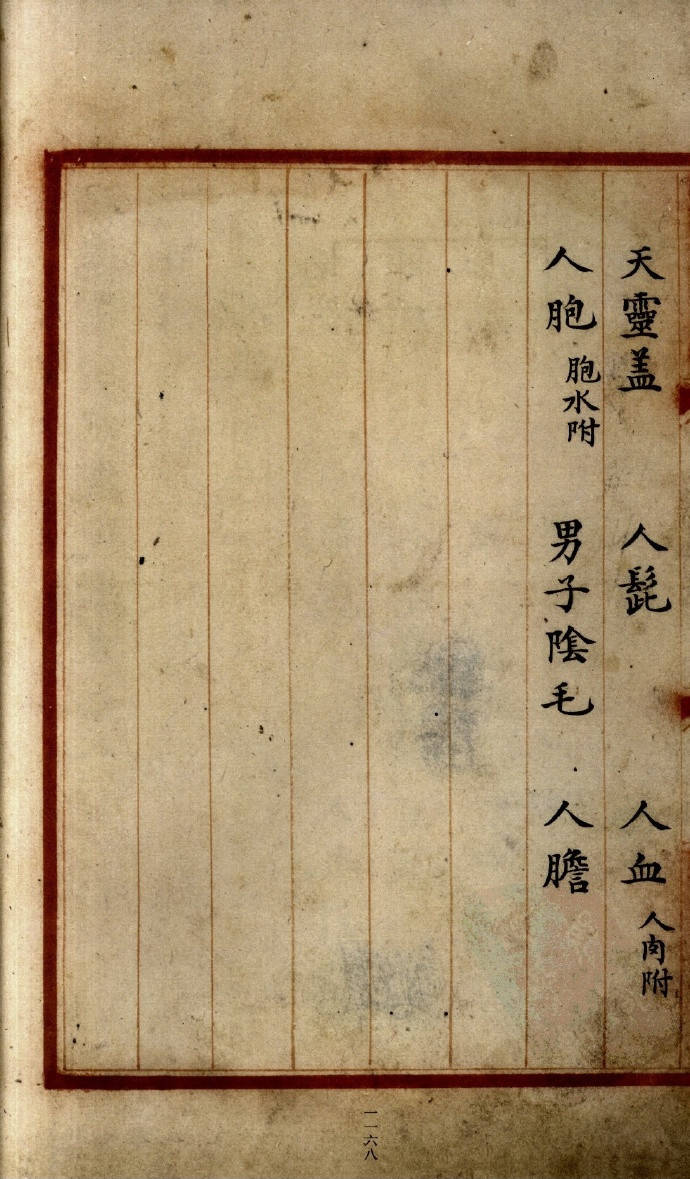 天靈盖　人髭　人血 人肉附
人胞 胞水附　男子陰毛　人膽
一一六八